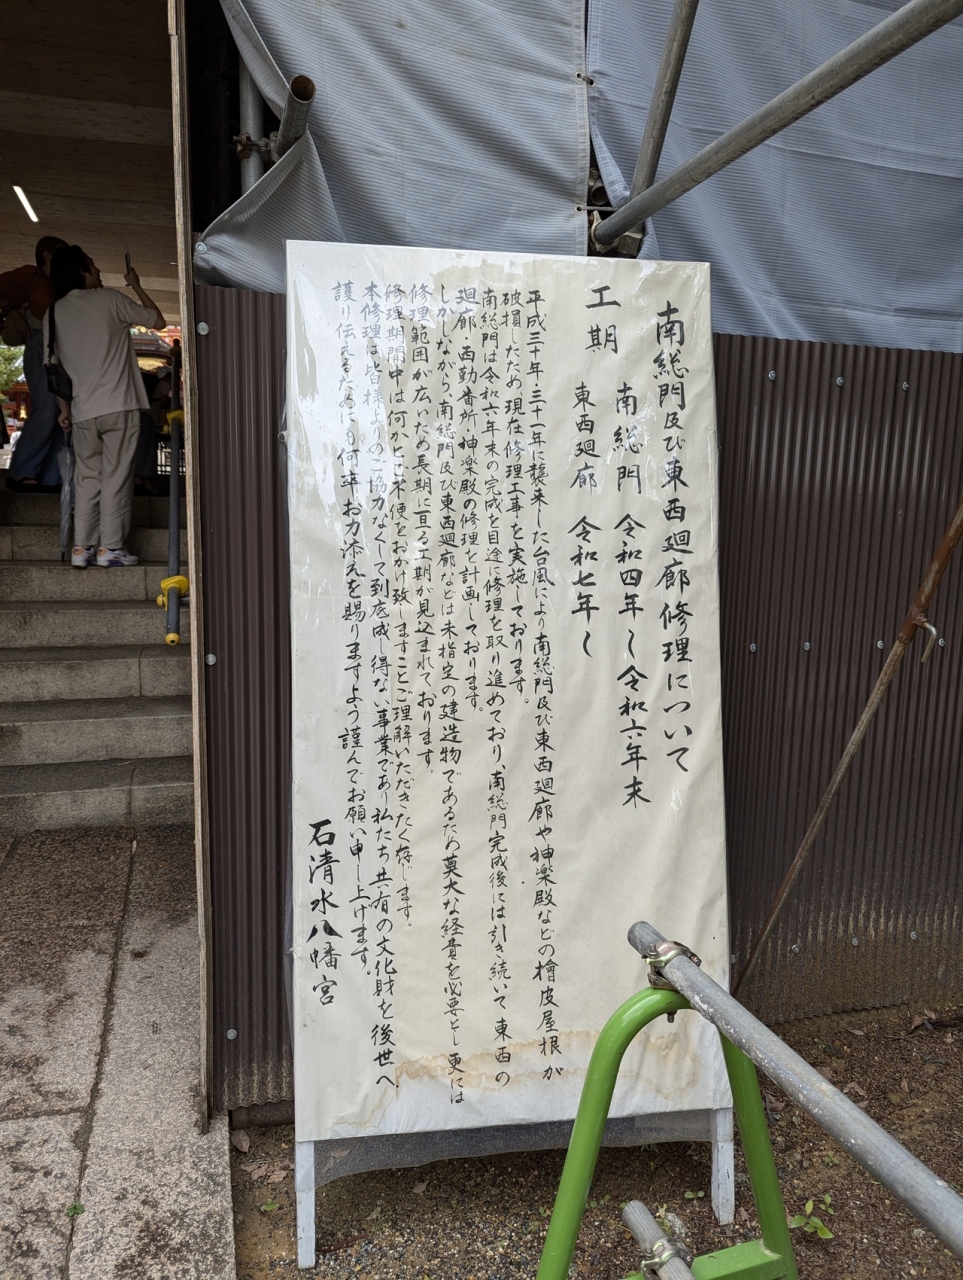 南総門及び東西廻廊修理について
工期
南総門 令和四年〜令和六年末
東西廻廊 令和七年〜
平成三十年・三十一年に襲来した台風により南総門及び東西廻廊や神楽殿などの檜皮屋根が
破損したため、現在修理工事を実施しております。
南総門は令和六年末の完成を目途に修理を取り進めており、南総門完成後には引き続いて東西の
廻廊・西勤番所・神楽殿の修理を計画しております。
しかしながら南総門及び東西廻廊などは未指定の建造物であるため莫大な経費を必要とし更には
修理範囲が広いため長期に亘る工期が見込まれております。
修理期間中は何かとご不便をおかけ致しますことご理解いただきたく存じます。
本修理は皆様よりのご協力なくして到底成し得ない事業であり私たち共有の文化財を後世へ
護り伝えるためにも何卒お力添えを賜りますよう謹んでお願い申し上げます。
石清水八幡宮